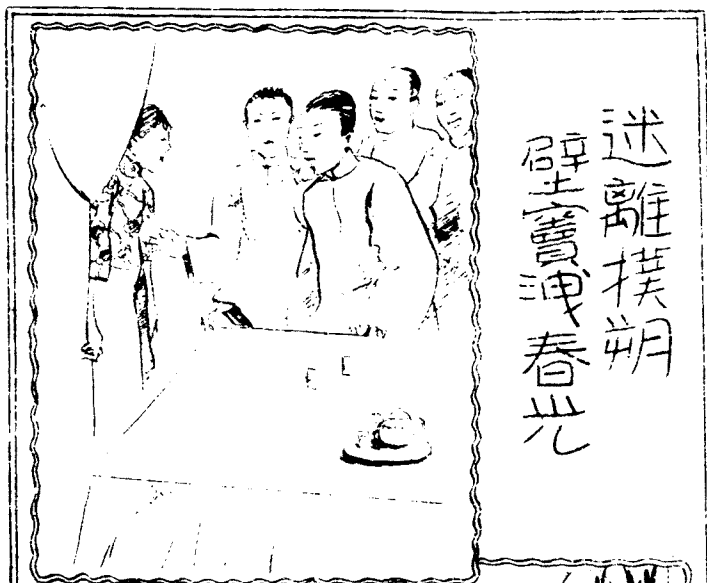 迷離撲朔
壁竇洩春光